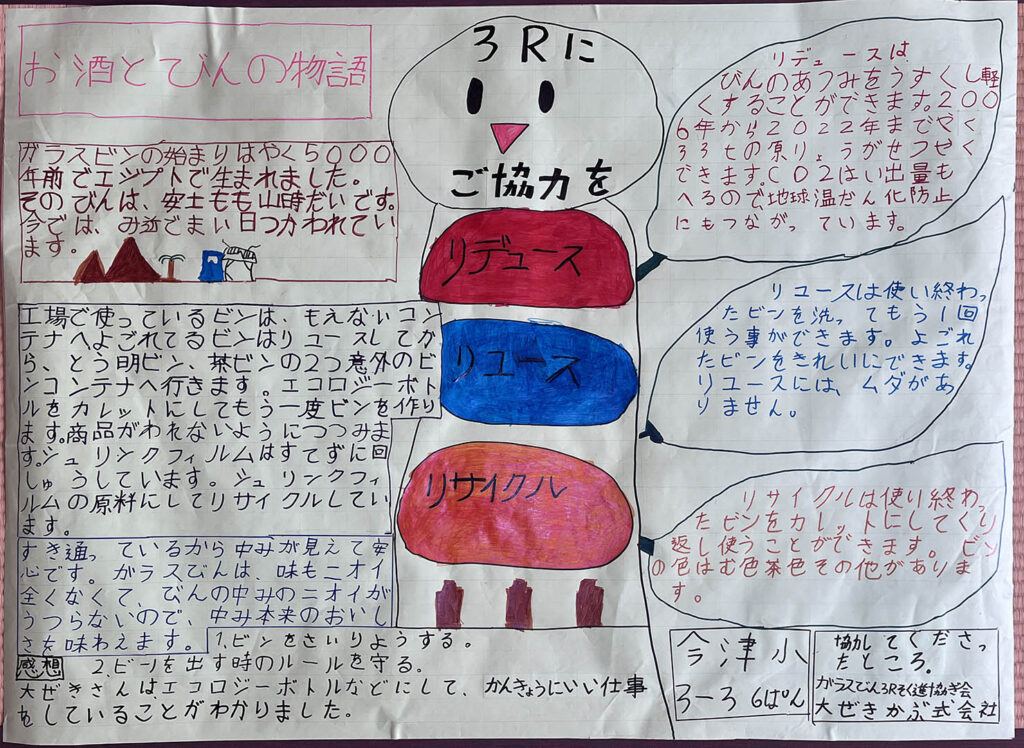 お酒とびんの物語
ガラスビンの始まりはやく5000
年前でエジプトで生まれました。
そのびんは、安土もも山時だいです。
今では、み近でまい日つかわれてい
ます。
工場で使っているビンは、もえないコン
テナへよごれてるビンはリユースしてか
ら、とう明ビン、茶ビンの2つ意外のビ
ンコンテナへ行きます。エコロジーボト
ルをカレットにしてもう一度ビンを作り
ます。商品がわれないようにつつみま
す。シュリンクフィルムはすてずに回
しゅうしています。シュリンクフィ
ルムの原料にしてリサイクルしてい
ます。
すき通っているから中みが見えて安
心です。ガラスびんは、味もニオイ
全くなくて、びんの中みのニオイが
うつらないので、中み本来のおいし
さを味わえます。
感想
1.ビンをさいりようする。
2.ビンを出す時のルールを守る。
大ぜきさんはエコロジーボトルなどにして、かんきょうにいい仕事
をしていることがわかりました。
3Rに
ご協力を
リデュース
リユース
リサイクル
リデュースは
びんのあつみをうすくし軽
くすることができます。200
6年から2022年までやく
33tの原りょうがせつやく
できます。CO2はい出量も
へるので地球温だん化防止
にもつながっています。
リユースは使い終わっ
たビンを洗ってもう1回
使う事ができます。よごれ
たビンをきれいにできます。
リユースには、ムダがあ
りません。
リサイクルは使り終わっ
たビンをカレットにしてくり
返し使うことができます。ビン
の色はむ色茶色その他がありま
す。
今津小
3-3 6ぱん
協力してくださっ
たところ。
ガラスびん3Rそく進協ぎ会
大ぜきかぶ式会社